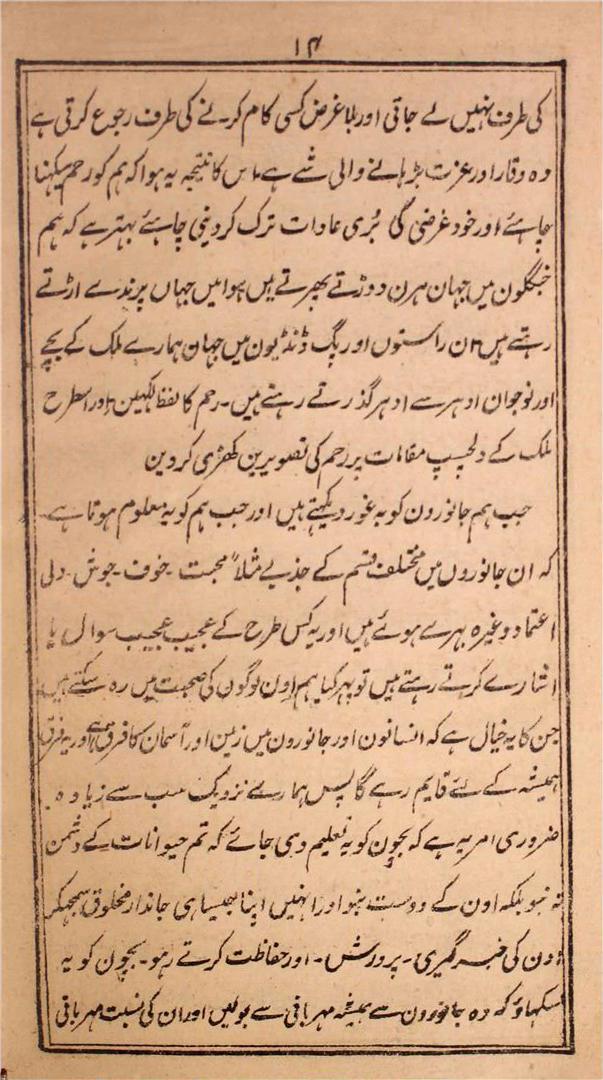 ۱۴
کی طرف نہیں لے جاتی اور بلا غرض کسی کام کرنے کی طرف رجوع کرتی ہے
وہ وقار اور عزت بڑہانے والی شے ہے۔ اس کا نتیجہ یہ ہوا کہ ہم کو رحم سیکہنا
چاہئے اور خود غرضی کی بُری عادات ترک کر دینی چاہئے بہتر ہے کہ ہم
جنگلون میں جہان ہرن دوڑتے پھرتے ہیں ہوا میں جہاں پرندے اڑتے
رہتے ہیں ان راستوں اور پگ ڈنڈیون میں جہان ہمارے ملک کے بچے
اور نوجوان ادہر سے ادہر گذرتے رہتے ہیں۔ رحم کا لفظ لکہین اور اسطرح
ملک کے دلچسپ مقامات پر رحم کی تصویرین کھڑی کر دین
جب ہم جانورون کو بہ غور دیکہتے ہیں اور جب ہم کو یہ معلوم ہوتا ہے۔
کہ ان جانوروں میں مختلف قسم کے جذبے مثلاً محبت ۔ خوف ۔ جوش ۔ دلی
اعتماد وغیرہ بہرے ہوئے ہیں اور یہ کس طرح کے عجیب عجیب سوال یا
اشارے کرتے رہتے ہیں تو پہر کیا ہم اون لوگون کی صحبت میں رہ سکتے ہیں
جن کا یہ خیال ہے کہ انسانون اور جانورون میں زمین اور آسمان کا فرق ہے اور یہ فرق
ہمیشہ کے لئے قایم رہے گا پس ہمارے نزدیک سب سے زیادہ
ضروری امر یہ ہے کہ بچون کو یہ تعلیم دی جائے کہ تم حیوانات کے دشمن
نہ بنو بلکہ اون کے دوست بنو اور انہیں اپنا جیسا ہی جاندار مخلوق سمجہکر
اون کی خبر گیری۔ پرورش۔ اور حفاظت کرتے رہو۔ بچون کو یہ
سکہاؤ کہ وہ جانورون سے ہمیشہ مہربانی سے بولیں اور ان کی نسبت مہربانی